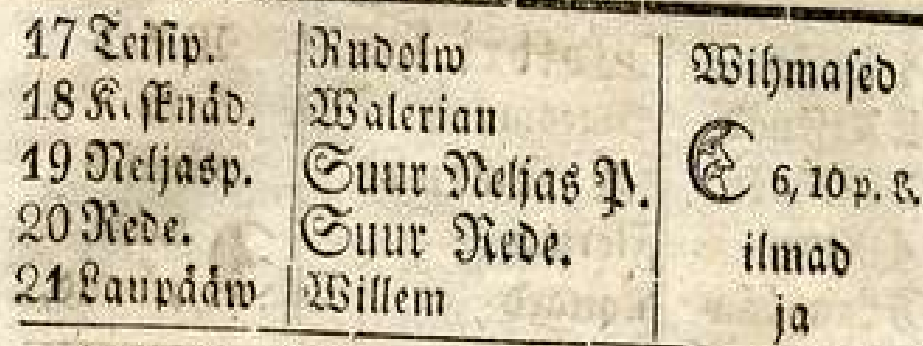 17 Teisip. Rudolw Wihmased
18 Kesknäd. Walerian
19 Neljasp. Suur Neljas P. 6, 10 p. L.
20 Rede. Suur Rede. ilmad
21 Laupääw Willem ja